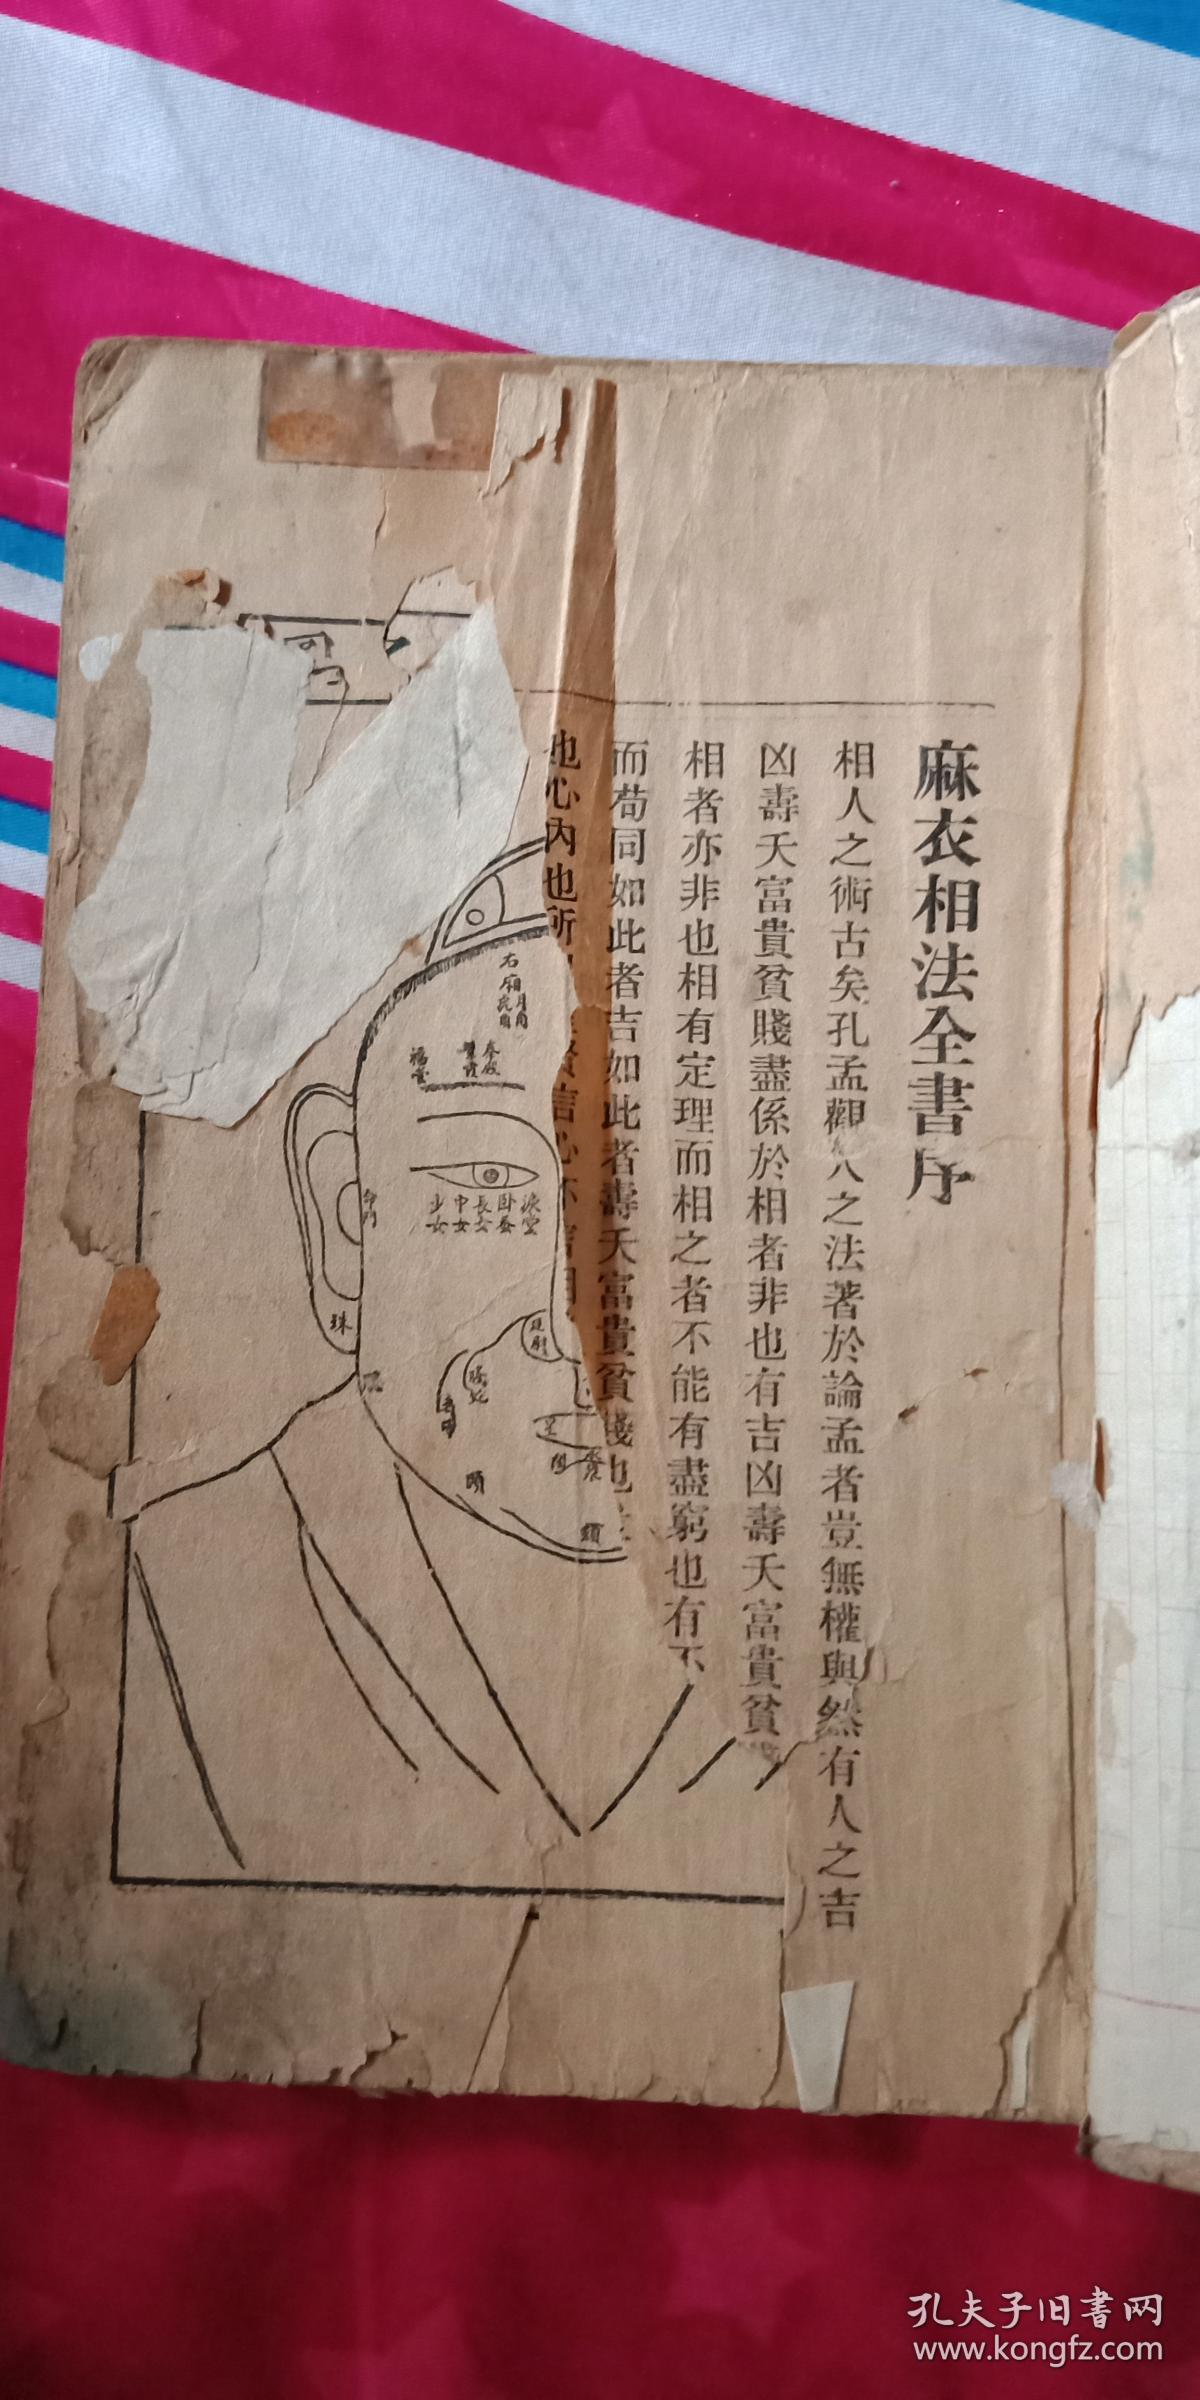 麻衣相法全書序
相人之術古矣孔孟觀人之法著於論孟者豈無權與然有人之吉
凶壽夭富貴貧賤盡係於相者非也有吉凶壽夭富貴貧
相者亦非也相有定理而相之者不能有盡窮也有不
而苟同如此者吉如此者壽夭富貴貧賤也
也心內也所
信心不
右廂
月角
福堂
淚堂
臥蚕
長女
中女
少女
命門
珠
頤
頦
孔夫子旧书网
www.kongfz.com